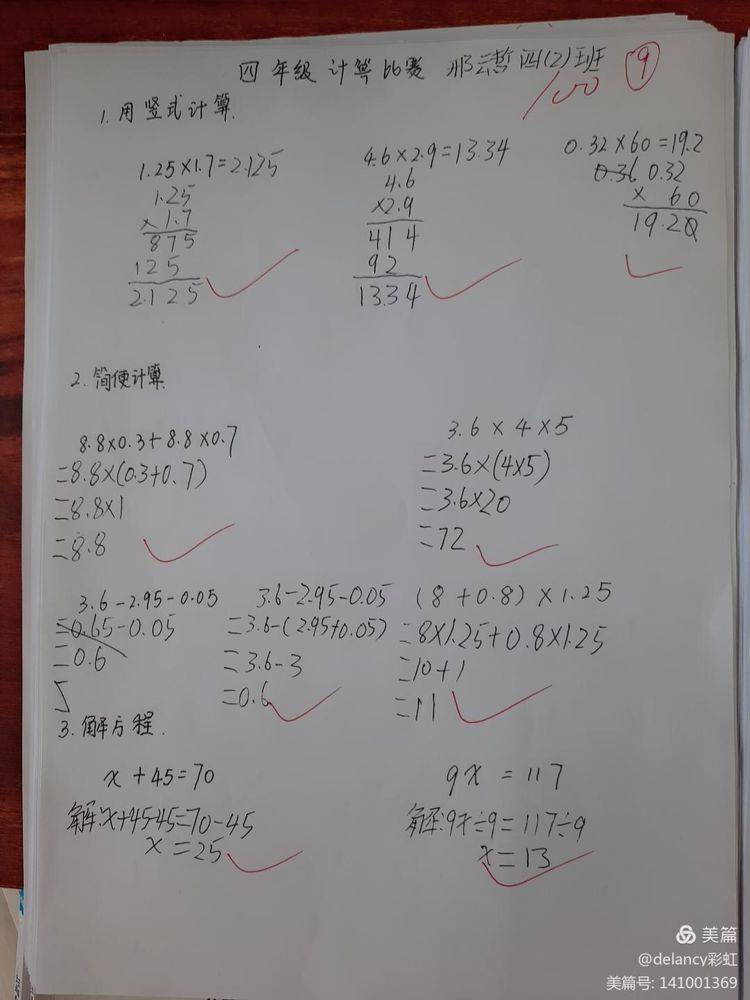 四年级计算比赛 邢云哲 四(2)班 9
100
1.用竖式计算.
1.25×1.7=2.125
1.25
×1.7
875
125
2.125
4.6×2.9=13.34
4.6
×2.9
414
92
13.34
0.32×60=19.2
0.32
× 60
19.20
2.简便计算.
8.8×0.3+8.8×0.7
=8.8×(0.3+0.7)
=8.8×1
=8.8
3.6×4×5
=3.6×(4×5)
=3.6×20
=72
3.6-2.95-0.05
=0.65-0.05
=0.6
3.6-2.95-0.05
=3.6-(2.95+0.05)
=3.6-3
=0.6
(8+0.8)×1.25
=8×1.25+0.8×1.25
=10+1
=11
3.解方程.
x+45=70
解:x+45-45=70-45
x=25
9x=117
解:9x÷9=117÷9
x=13
美篇
@delancy彩虹
美篇号: 141001369